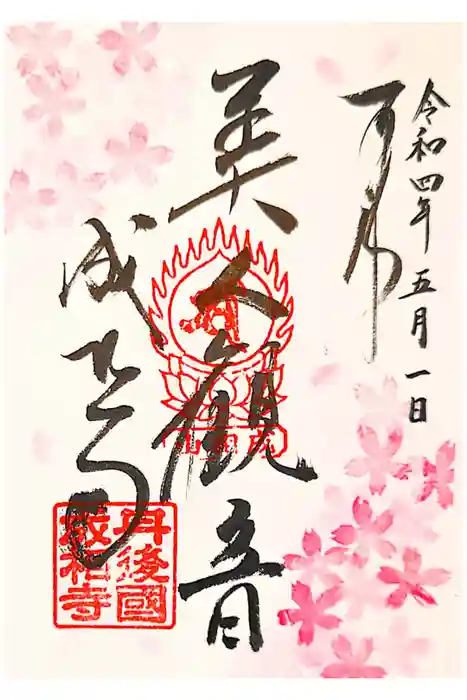 令和四年五月一日
奉拝
美人観音
成相寺
成相山
丹後國
成相寺